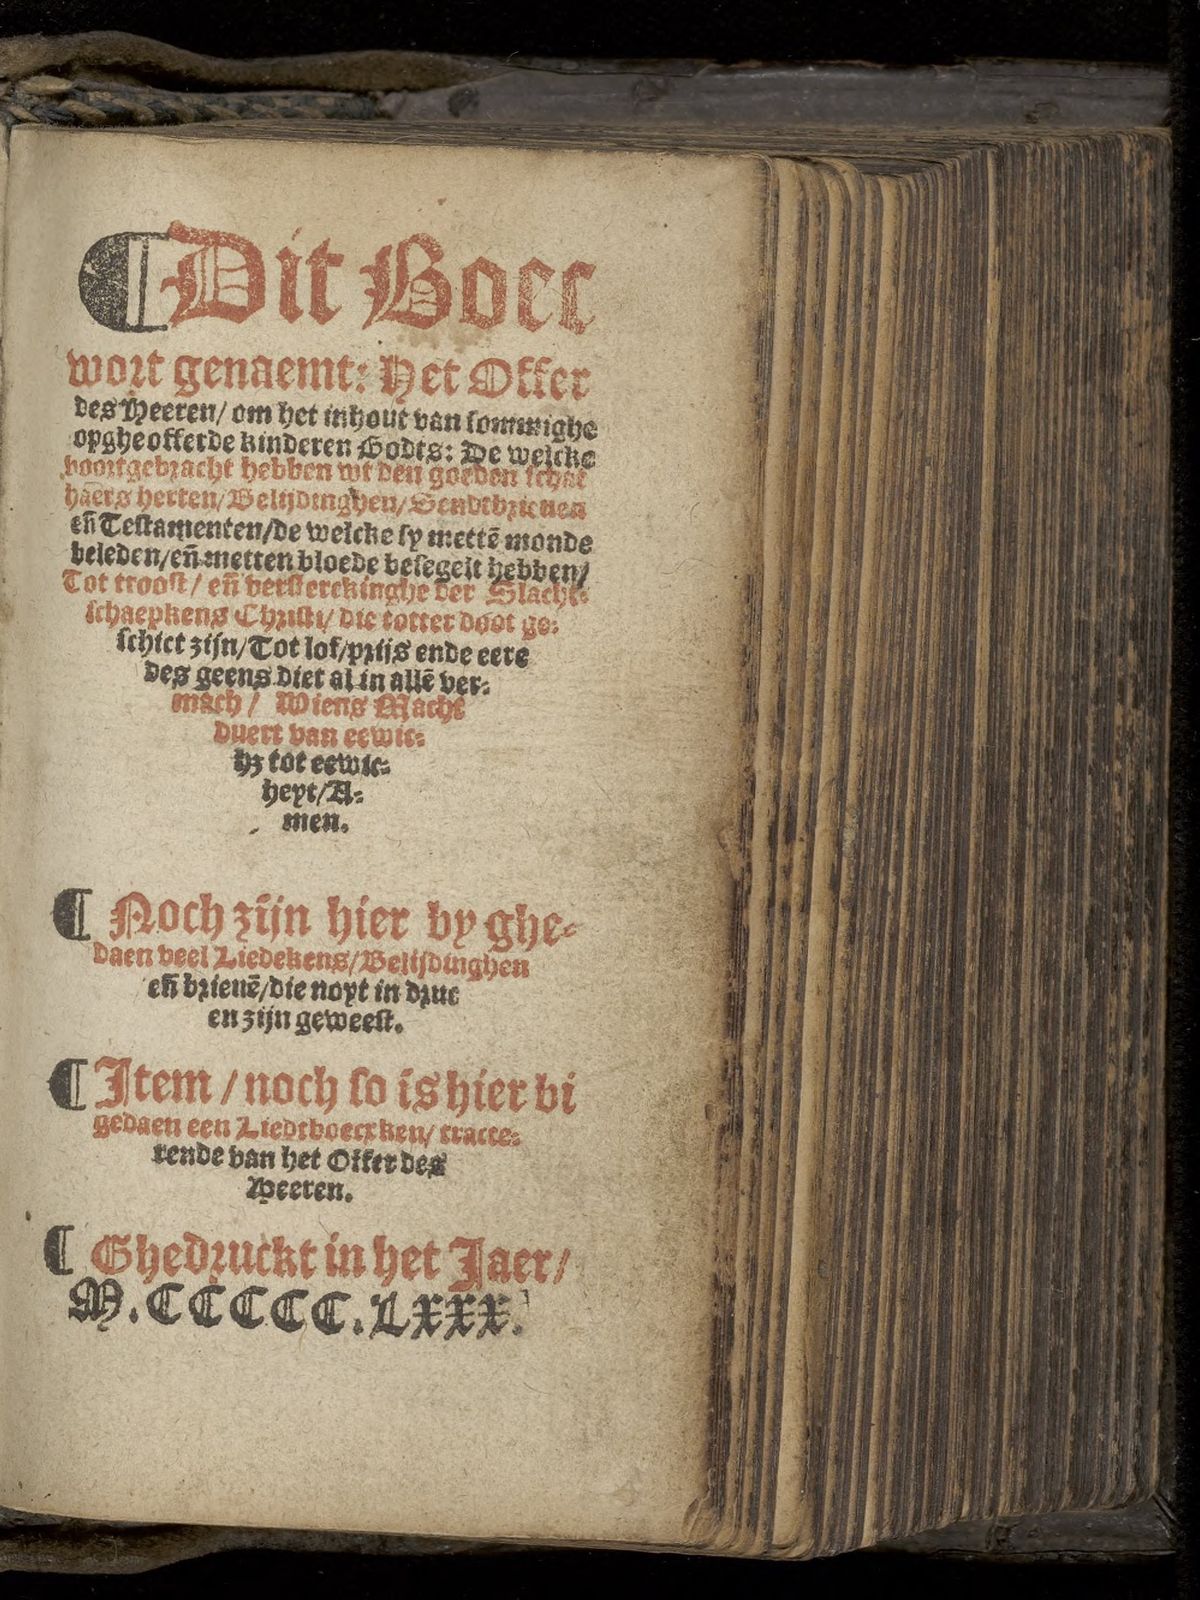 ¶ Dit Boec
wort genaemt: Het Offer
des Heeren/ om het inhout van sommighe
opgheofferde kinderen Godts: De welcke
voortgebracht hebben wt den goeden schat
haers herten/Belijdinghen/Sendtbrieuen
eñ Testamenten/de welcke sy mettē monde
beleden/eñ metten bloede besegelt hebben/
Tot troost/ eñ versterckinghe der Slacht-
schaepkens Christi/ die totter doot ge-
schict zijn/Tot lof/prijs ende eere
des geens diet al in allē ver-
mach/ Wiens Macht
duert van eewic-
hz tot eewic-
heyt/A-
men.
¶ Noch zijn hier by ghe-
daen veel Liedekens/Belijdinghen
eñ brieuē/die noyt in druc
en zijn geweest.
¶ Item/noch so is hier bi
gedaen een Liedtboecxken/ tracte-
rende van het Offer des
Heeren.
¶ Ghedruckt in het Jaer/
M.CCCCC.LXXX.